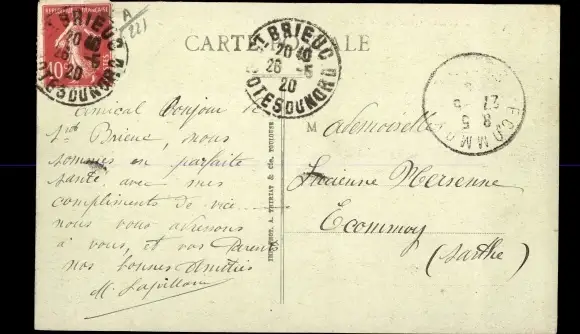 RÉPUBLIQUE FRANÇAISE
10
A
221
CARTE POSTALE
St BRIEUC
20 40
26 - 5
20
COTES DU NORD
St BRIEUC
20 40
26 - 5
20
COTES DU NORD
ECOMMOY
8
27 - 5
Amical Bonjour de
St Brieuc, nous
sommes en parfaite
santé avec mes
compliments de
nous vous adressons
à vous, et vos Parents
nos bonnes Amitiés
IMPRESSE. A. THIRIAT & Cie. TOULOUSE
Mademoiselle
Lucienne Mersenne
Ecommoy
(Sarthe)